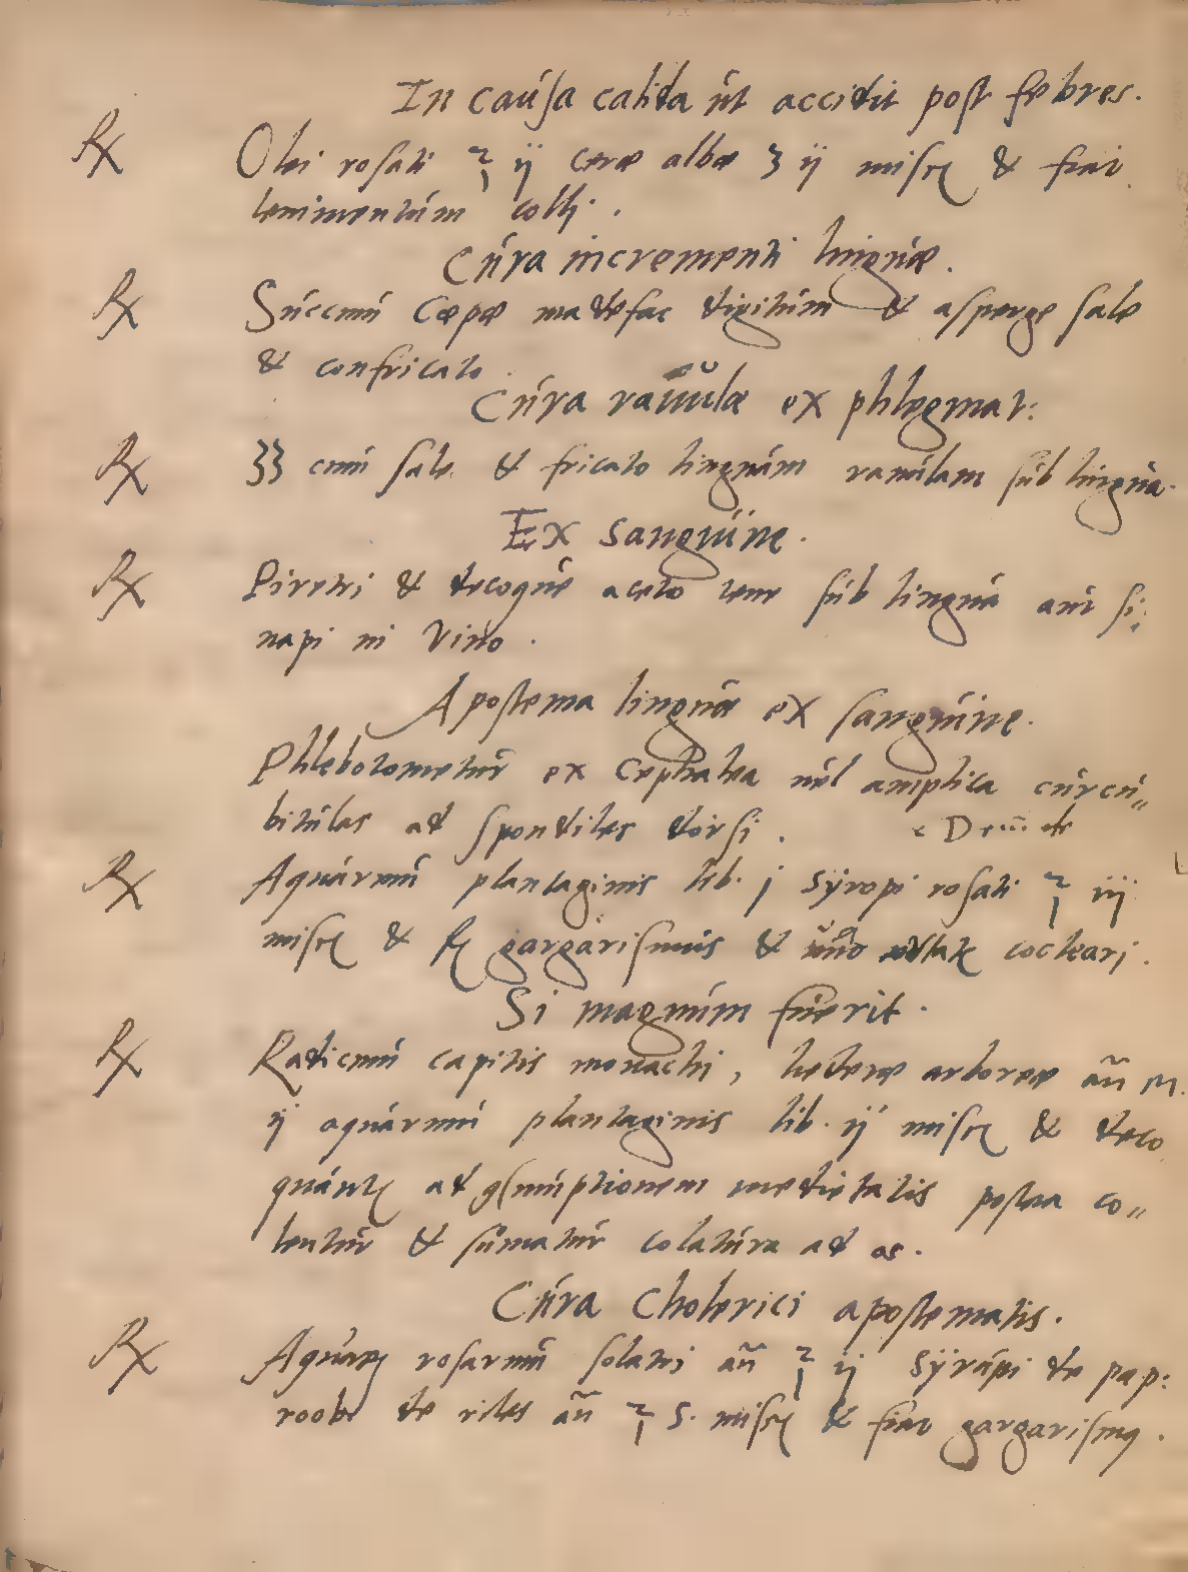 In caúsa calida út accidit post febres.
℞ Olei rosati ℥ ij ceræ albæ ʒ ij misce & fiat
lenimentúm colli.
Cúra incrementi linguæ.
℞ Súccum Cæpæ madefac digitúm & asperge sale
& confricato.
Cúra ranulæ ex phlegmat:
℞ ʒʒ cum sale & fricato linguám ranúlam súb lingúa.
Ex sanguine.
℞ Piretri & decoque aceto tene súb linguá aut si:
napi in vino.
Apostema linguæ ex sanguine.
Phlebotometúr ex Cephalea uél amplica cúrcú„
bitúlas ad spondiles dorsi.
℞ Aquárum plantaginis lib. j sÿropi rosati ℥ iij
misce & f gargarismus & úno cocleari.
Si magnúm fúerit.
℞ Radicum capitis monachi, hederæ arboreæ añ M.
ij aquárum plantaginis lib. ij misce & deco
quántur ad medietatis postea co„
lentúr & súmatúr colatúra ad os.
Cúra Cholerici apostematis.
℞ Aquárum rosarum solatri añ ℥ ij sÿrúpi de pap:
roob de ribes añ ℥ s. misce & fiat gargarismus.